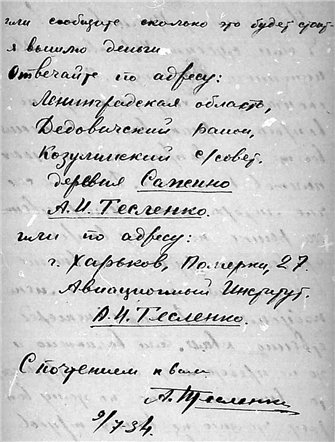 или сообщите сколько это будет стоит
я вышлю деньги
Отвечайте по адресу:
Ленинградская область,
Дедовичский район,
Козулинский с/совет.
деревня Сажино
А.И. Тесленко.
или по адресу:
г. Харьков, Померки, 27.
Авиационный Институт.
А.И. Тесленко.
С почтением к вам
А. Тесленко
9/7-34.